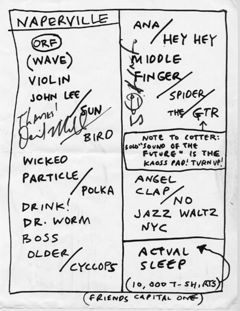 NAPERVILLE
ORF
(WAVE)
VIOLIN
JOHN LEE
Thanks!
/SUN
/BIRD
WICKED
PARTICLE
/POLKA
DRINK!
DR. WORM
BOSS
OLDER
/CYCLOPS
ANA
/HEY HEY
MIDDLE
FINGER
/SPIDER
THE GTR
NOTE TO COTTER:
SOLO "SOUND OF THE
FUTURE" IS THE
KAOSS PAD! TURN UP!
ANGEL
CLAP
/NO
JAZZ WALTZ
NYC
ACTUAL
SLEEP
(10,000 T-SHIRTS)
(FRIENDS CAPITAL ONE)